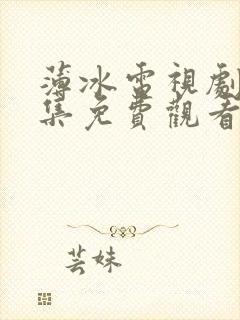 薄冰電視劇
集免費觀看
芸妹